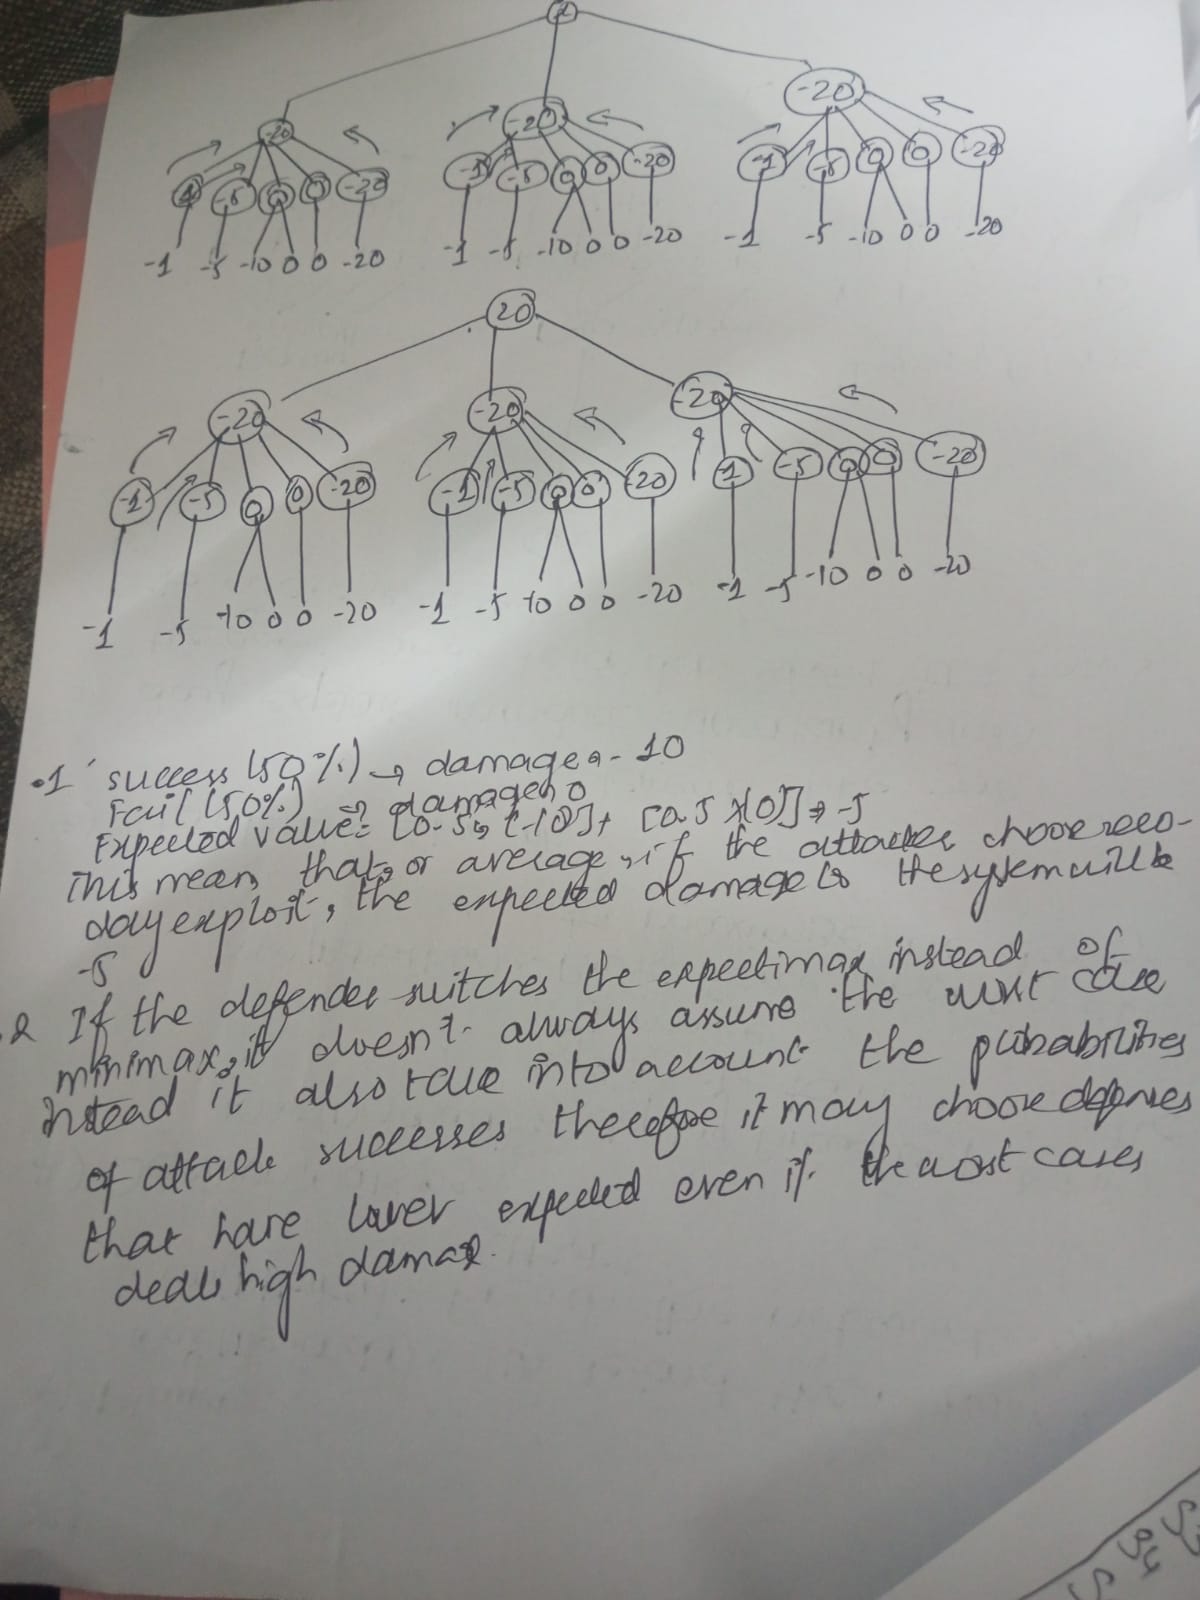 -20
-20 -20
-5 0 0 -20 -1 -5 0 0 -20 -1 -5 0 0 -20
-1 -5 -10 0 0 -20 -1 -5 -10 0 0 -20 -1 -5 -10 0 0 -20
20
-20 -20 -20
-1 -5 0 0 -20 -1 -5 0 0 -20 1 -5 0 0 -20
-1 -5 -10 0 0 -20 -1 -5 10 0 0 -20 -1 -5 -10 0 0 -20
.1 success (50%) → damage - 10
Fail (50%) → damage 0
Expected value = [0.5 (-10)] + [0.5 x(0)] → -5
This mean that, or average, if the attacker choose zero-
day exploit, the expected damage is the system will be
-5
.2 If the defender switches the expectimax instead of
minimax, it doesn't always assume the worst case
instead it also take into account the probabilities
of attack successes therefore it may choose defenses
that have lower expected even if the worst cases
deals high damage.